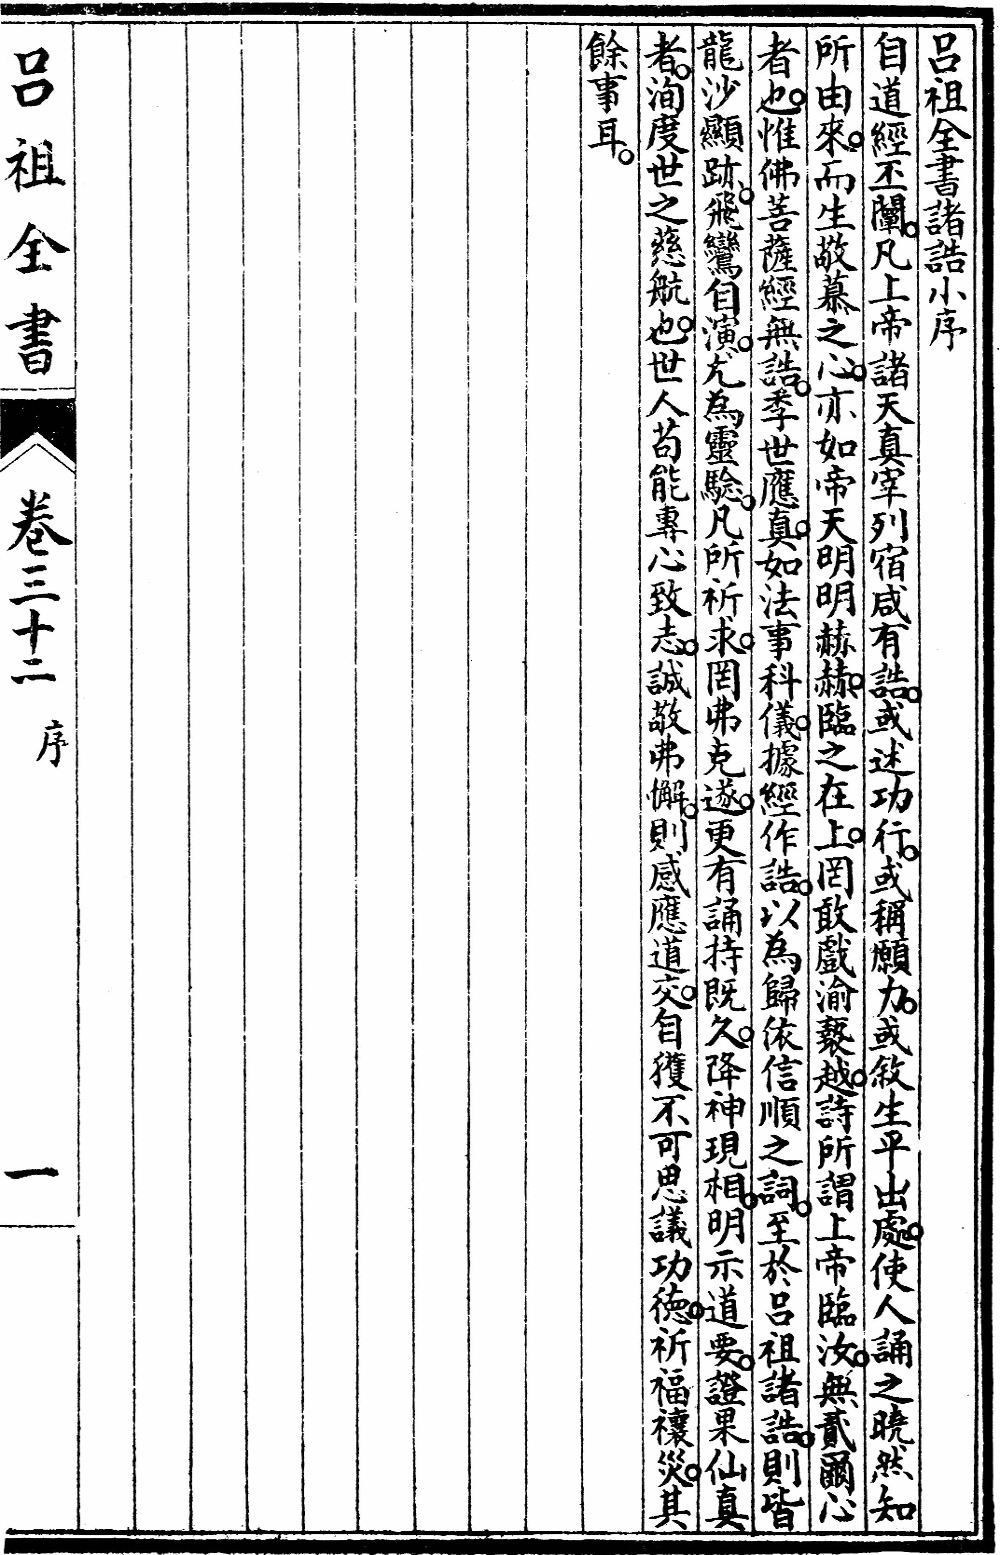 呂祖全書諸誥小序
自道經丕闡。凡上帝諸天真宰列宿咸有誥。或述功行。或稱願力。或敘生平出處。使人誦之曉然知
所由來。而生敬慕之心。亦如帝天明明赫赫。臨之在上。罔敢戲渝褻越。詩所謂上帝臨汝。無貳爾心
者也。惟佛菩薩經無誥。季世應真。如法事科儀。據經作誥。以為歸依信順之詞。至於呂祖諸誥。則皆
龍沙顯跡。飛鸞自演。尤為靈驗。凡所祈求。罔弗克遂。更有誦持既久。降神現相。明示道要。證果仙真
者。洵度世之慈航也。世人茍能專心致志。誠敬弗懈。則感應道交。自獲不可思議功德。祈福禳災。其
餘事耳。
呂祖全書 卷三十二 序 一